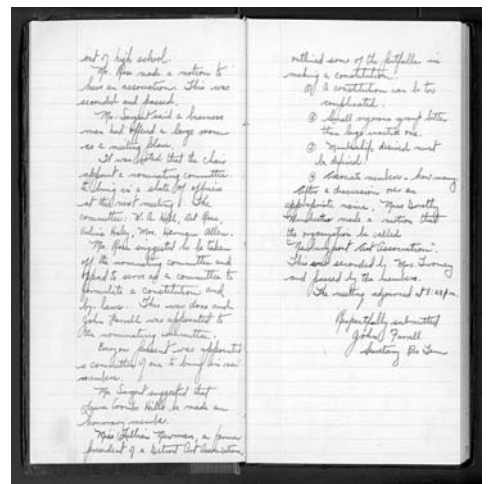 out of high school.
Mr. Ross made a motion to
have an association. This was
seconded and passed.
Mr. Sargent said a business
man had offered a large room
as a meeting place.
It was voted that the chair
appoint a nominating committee
to bring in a slate of officers
at the next meeting. The
committee: W. A. Art Ross,
Haley, Mrs. Allen.
Mr. Ross suggested he be taken
off the nominating committee and
offered to serve as a committee to
formulate a constitution and
by-laws. This was done and
John Farrell was appointed to
the nominating committee.
Everyone present was appointed
a committee of one to bring in new
members.
Mr. Sargent suggested that
Coombs be made an
honorary member.
Miss Lillian Newman, a former
president of a Detroit Art Association,
outlined some of the pitfalls in
making a constitution.
① A constitution can be too
complicated.
② Small vigorous group better
than large one.
③ Membership desired must
be defined.
④ members - how many
After a discussion over an
appropriate name, Miss Dorothy
made a motion that
the organization be called
"Newburyport Art Association".
This was seconded by Mrs.
and passed by the members.
The meeting adjourned at
Respectfully submitted
John Farrell
Secretary Pro Tem